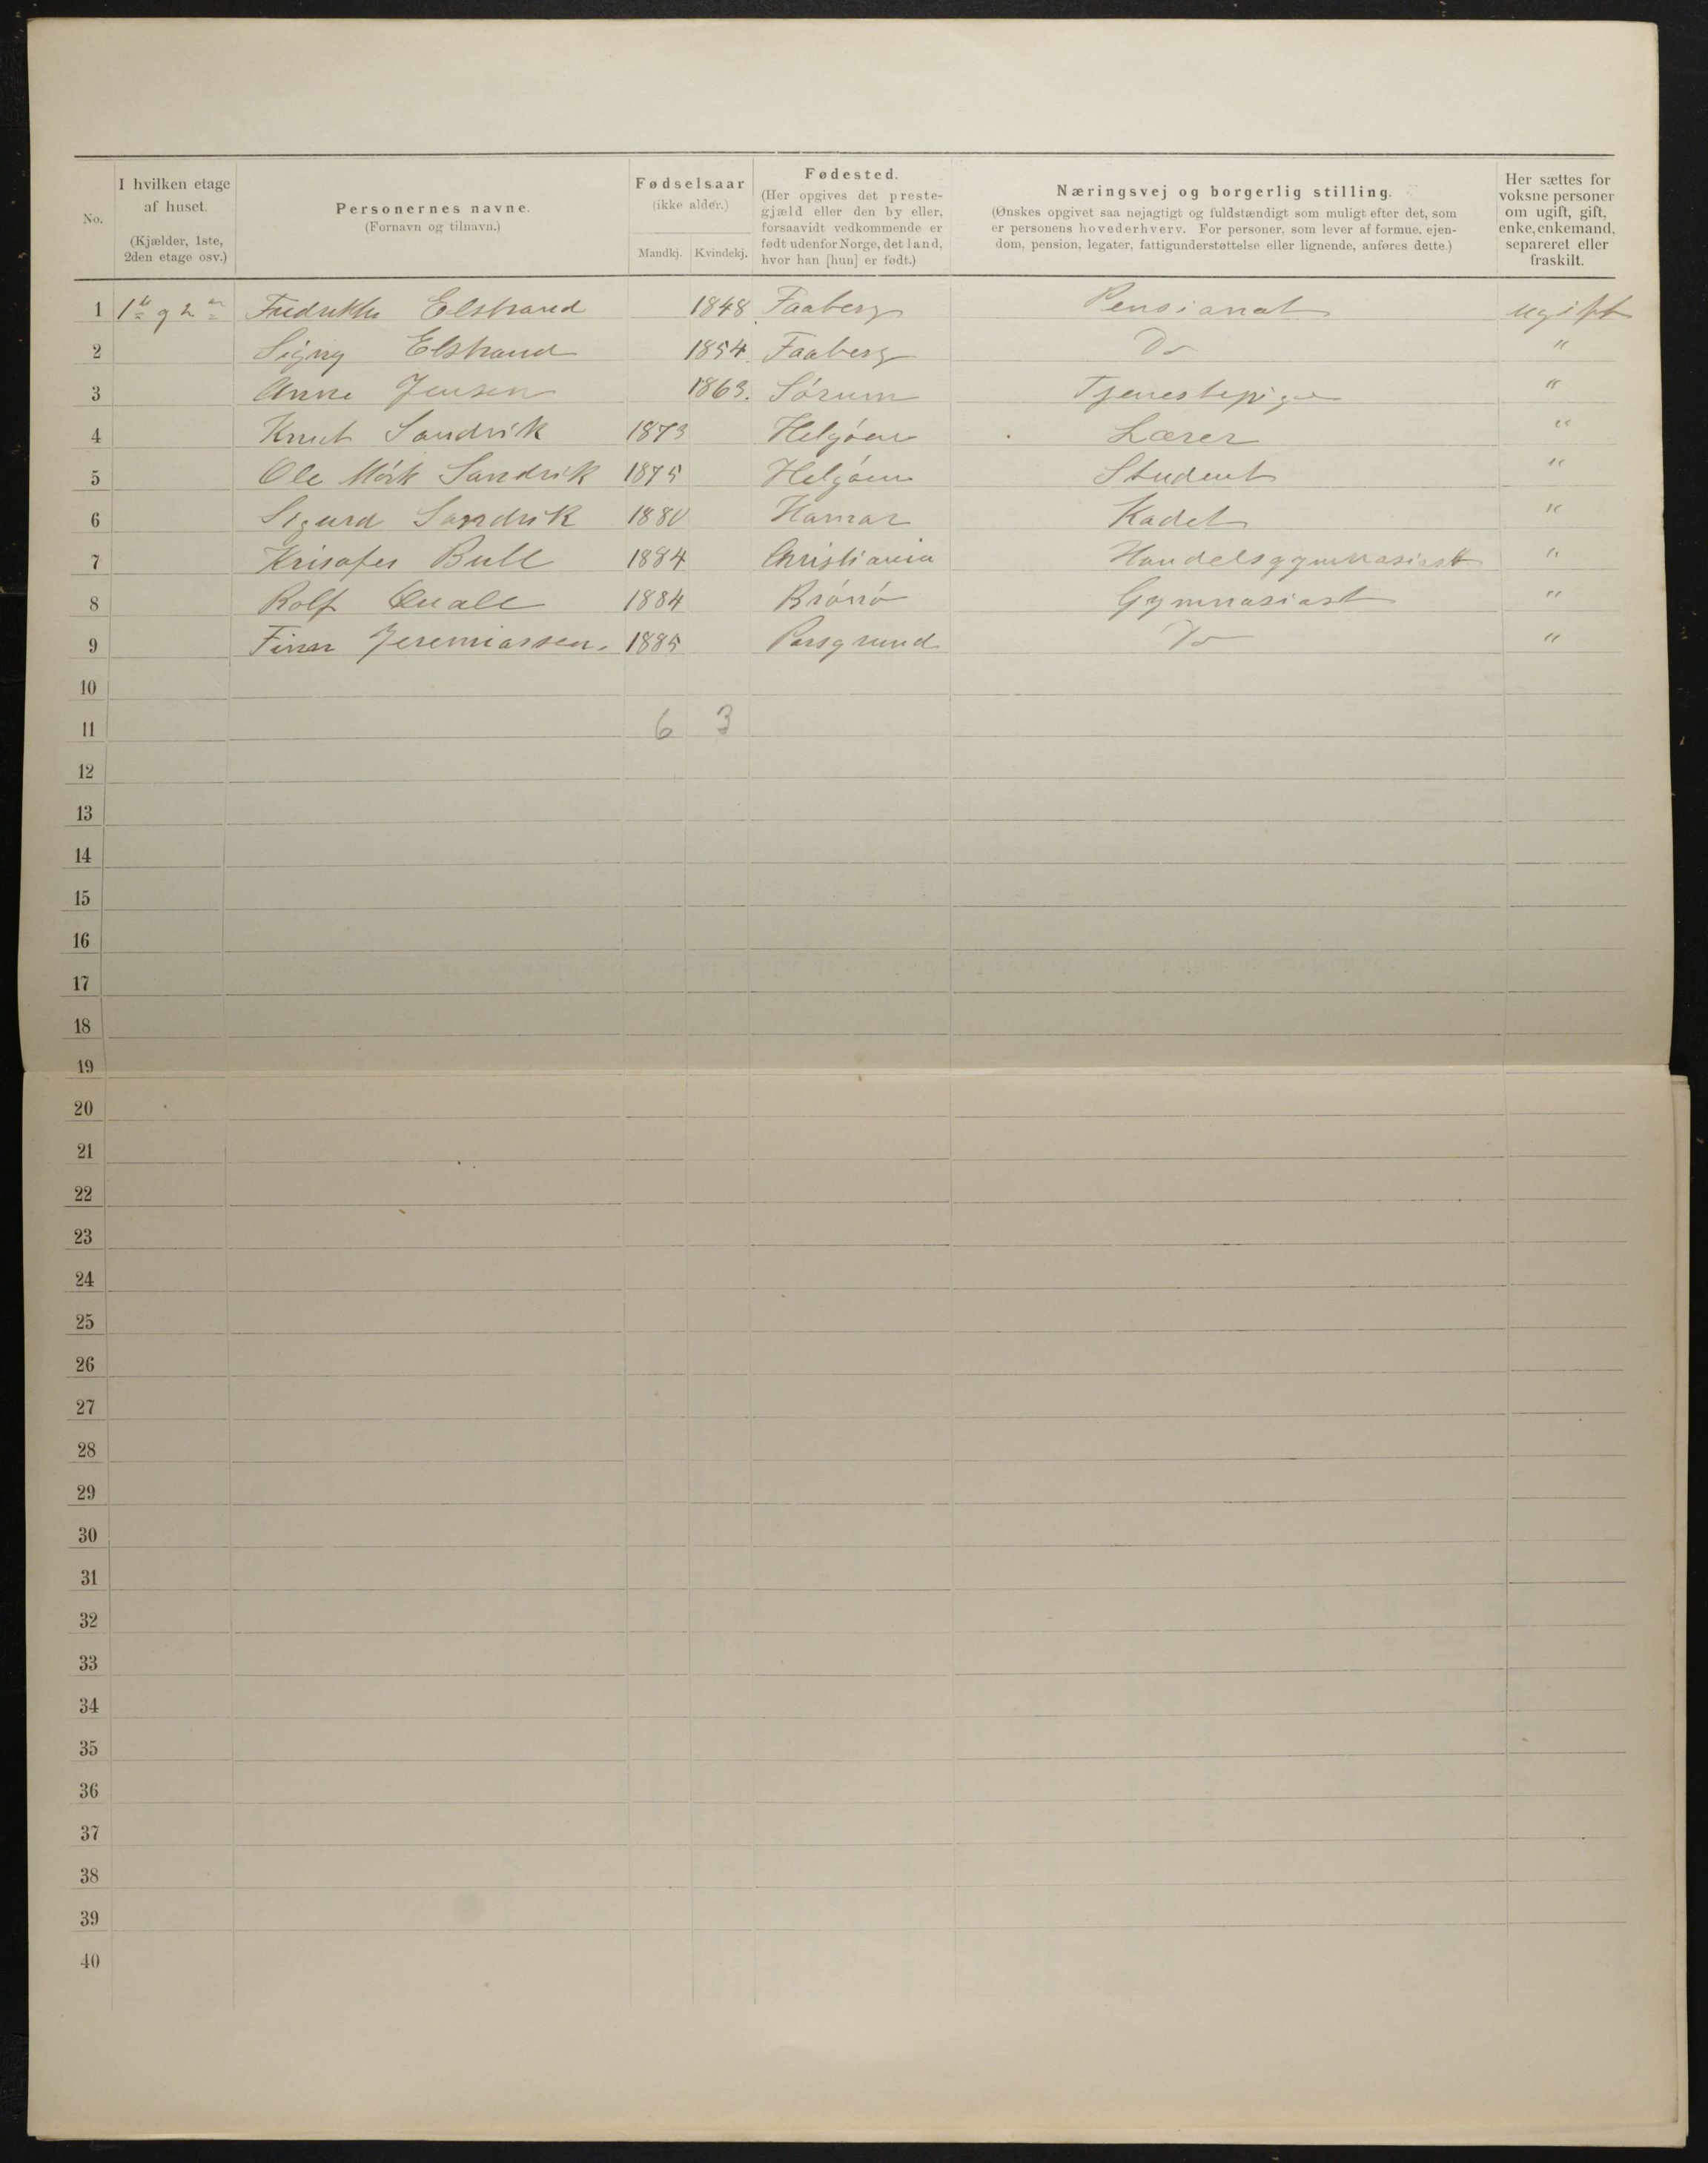 No.
I hvilken etage
af huset.
(Kjælder, 1ste,
2den etage osv.)
Personernes navne.
(Fornavn og tilnavn.)
Fødselsaar
(ikke alder.)
Mandkj. Kvindekj.
Fødested.
(Her opgives det preste-
gjæld eller den by eller,
forsaavidt vedkommende er
født udenfor Norge, det land,
hvor han [hun] er født.)
Næringsvej og borgerlig stilling.
(Ønskes opgivet saa nøjagtigt og fuldstændigt som muligt efter det, som
er personens hovederhverv. For personer, som lever af formue, ejen-
dom, pension, legater, fattigunderstøttelse eller lignende, anføres dette.)
Her sættes for
voksne personer
om ugift, gift,
enke, enkemand,
separeret eller
fraskilt.
1 1ste og 2den Fredrikke Elstrand 1848 Faaberg Pensionat ugift
2 Signy Elstrand 1854. Faaberg Do "
3 Anne Jensen 1863. Sørum Tjenestepige "
4 Knut Sandvik 1873 Helgøen Lærer "
5 Ole Mørk Sandvik 1875 Helgøen Student "
6 Sigurd Sandvik 1880 Hamar Kadet "
7 Krisofer Bull 1884 Christiania Handelsgymnasiast "
8 Rolf Quale 1884 Brønø Gymnasiast "
9 Finn Jeremiassen. 1885 Porsgrund Do "
10
11 6 3
12
13
14
15
16
17
18
19
20
21
22
23
24
25
26
27
28
29
30
31
32
33
34
35
36
37
38
39
40